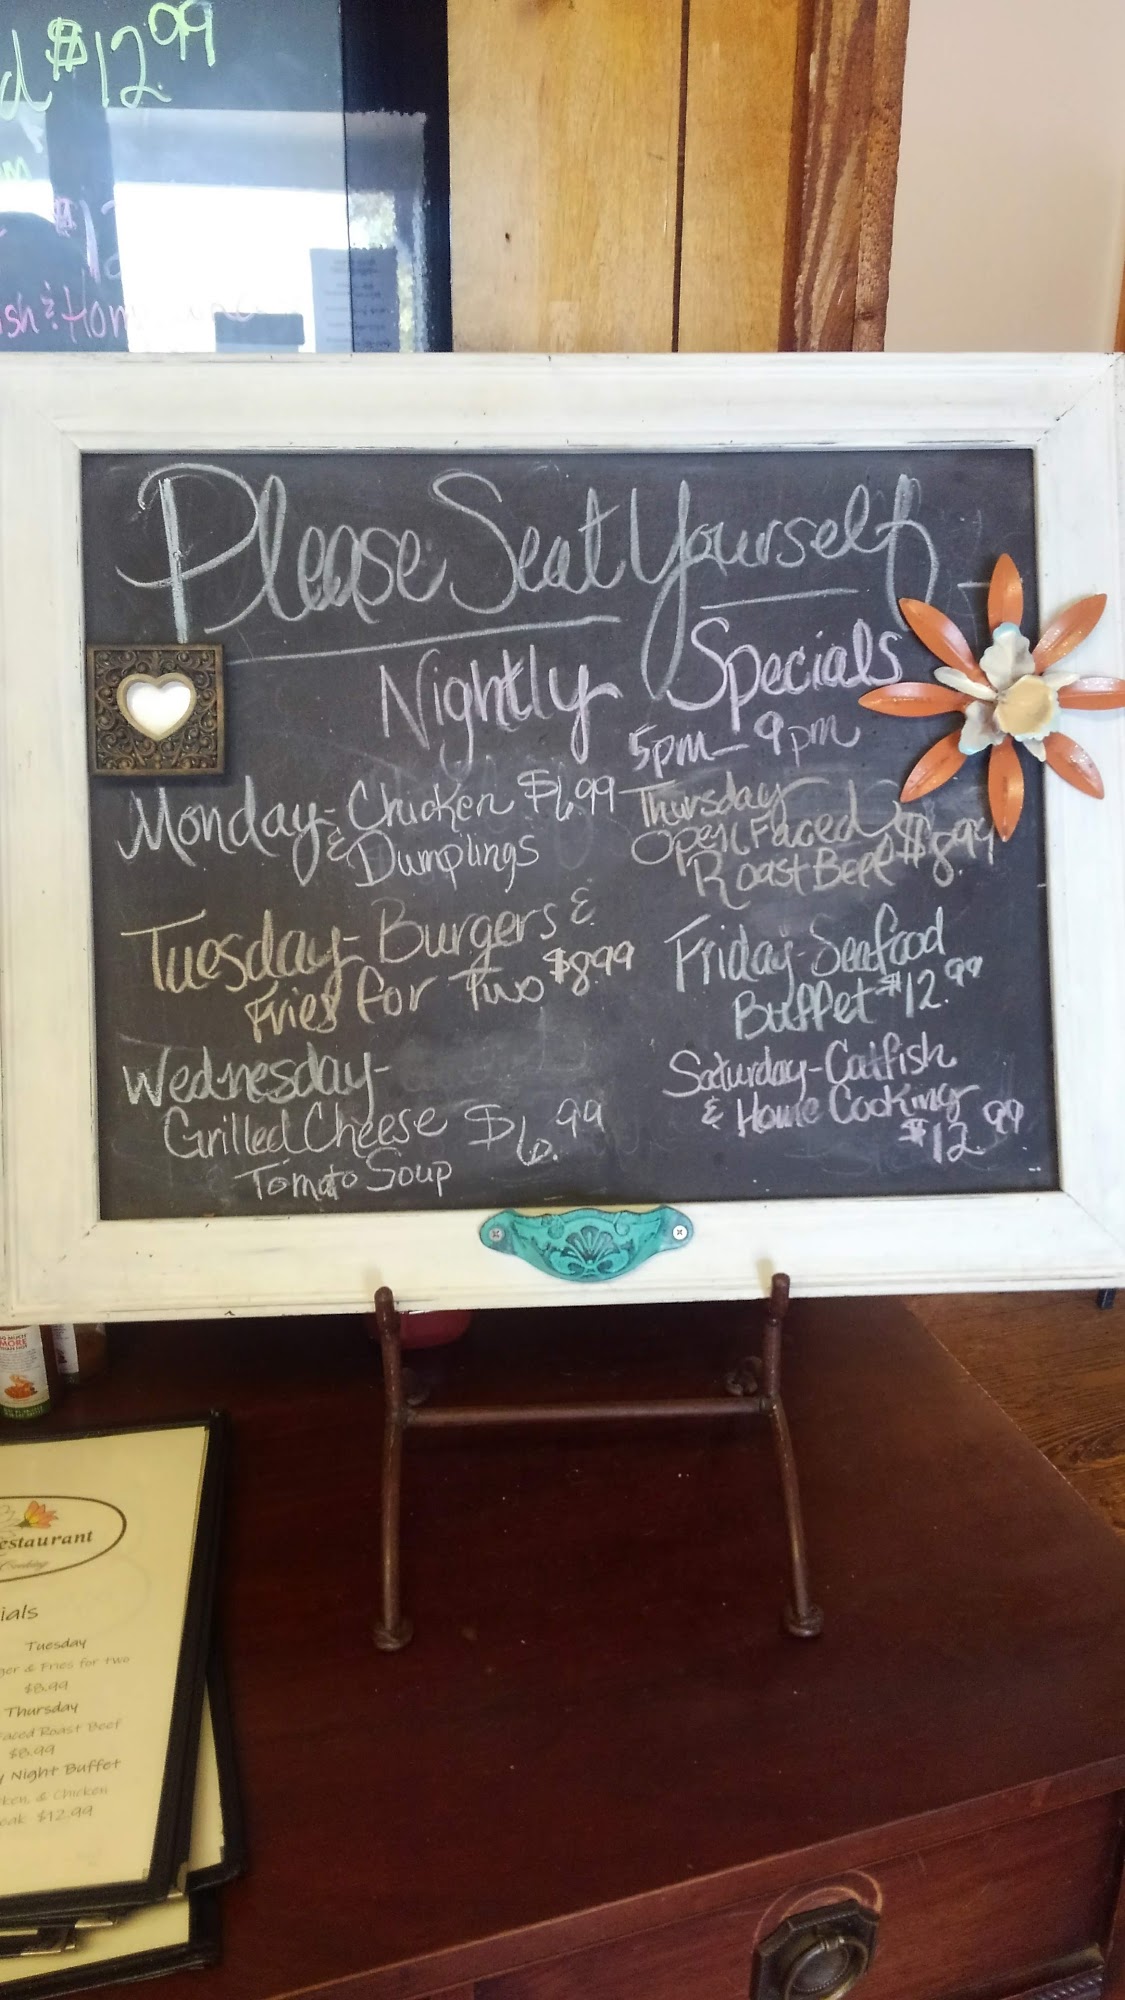 d $12.99
m
$12
sh & Hom
Please Seat Yourself
Nightly Specials
5pm - 9pm
Monday - Chicken $6.99
& Dumplings
Tuesday - Burgers &
Fries for Two $8.99
Wednesday -
Grilled Cheese $6.99
Tomato Soup
Thursday
Open Faced
Roast Beef $8.99
Friday - Seafood
Buffet $12.99
Saturday - Catfish
& Home Cooking
$12.99
MORE
estaurant
Cooking
ials
Tuesday
ger & Fries for two
$8.99
Thursday
Faced Roast Beef
$8.99
y Night Buffet
ken, & Chicken
eak $12.99